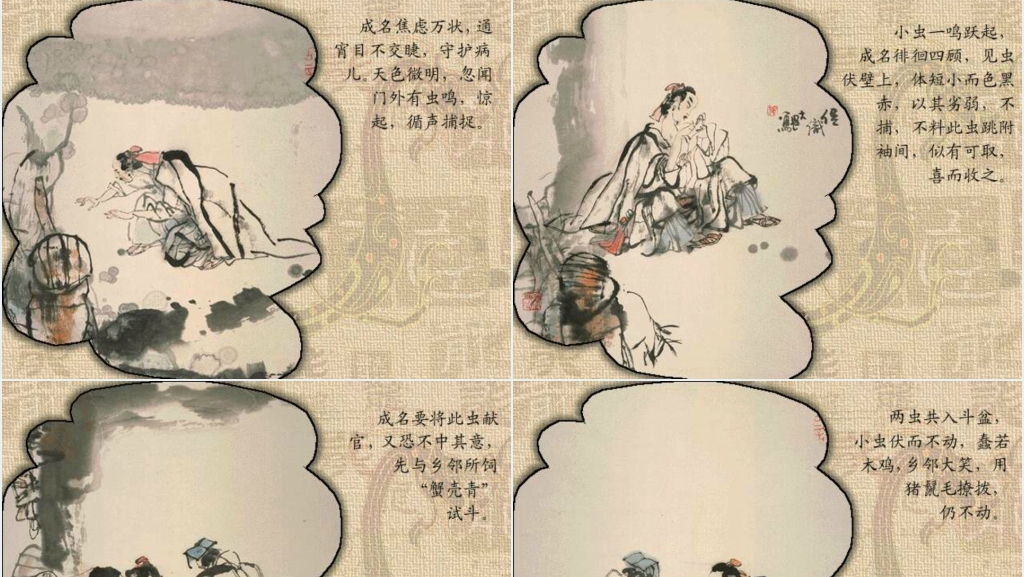 成名焦虑万状，通
宵目不交睫，守护病
儿。天色微明，忽闻
门外有虫鸣，惊
起，循声捕捉。
小虫一鸣跃起，
成名徘徊四顾，见虫
伏壁上，体短小而色黑
赤，以其劣弱，不
捕，不料此虫跳附
袖间，似有可取，
喜而收之。
成名要将此虫献
官，又恐不中其意，
先与乡邻所饲
“蟹壳青”
试斗。
两虫共入斗盆，
小虫伏而不动，蠢若
木鸡，乡邻大笑，用
猪鬣毛撩拨，
仍不动。